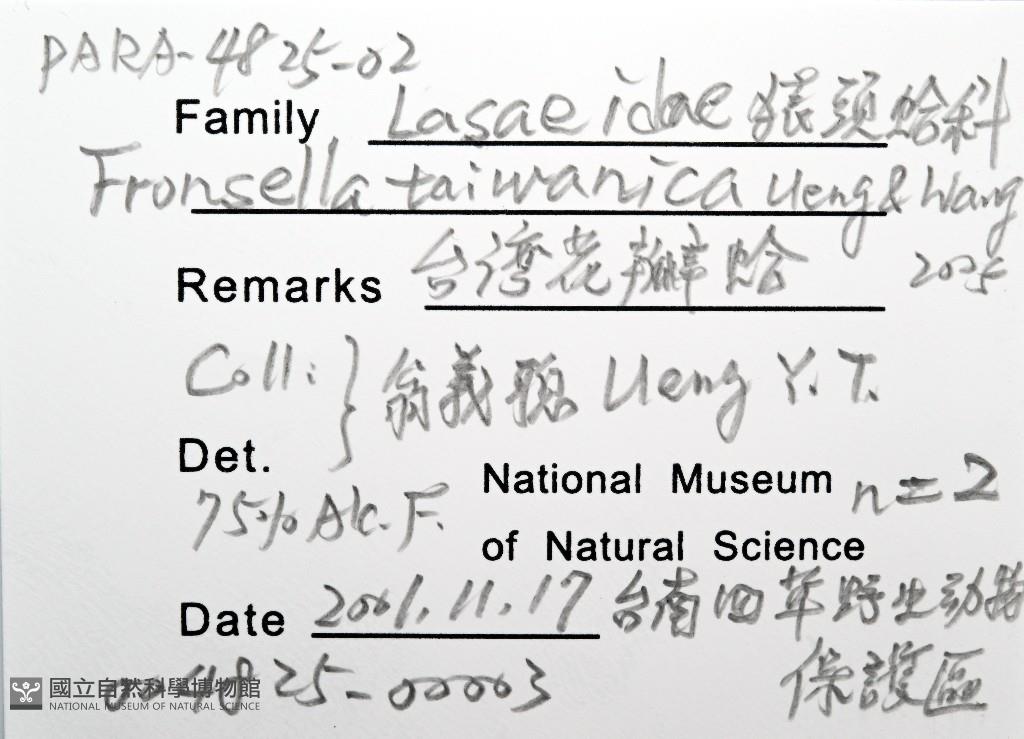 PARA-4825-02
Family Lasaeidae 猿頭蛤科
Fronsella taiwanica Ueng & Wang
2025
Remarks 台湾花瓣蛤
Coll: } 翁義聰 Ueng Y. T.
Det.
75% Alc. F.
National Museum n=2
of Natural Science
Date 2001.11.17 台南四草野生动物
保護區
4825-00003
國立自然科學博物館
NATIONAL MUSEUM OF NATURAL SCIENCE